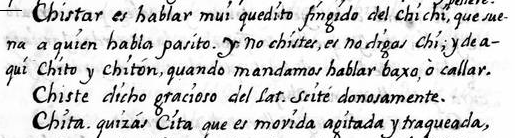 Chistar es hablar mui quedito fingido del chichi, que sue-
na a quien habla pasito. y no chistes, es no digas chi; y de a-
quí Chito y Chitón, quando mandamos hablar baxo, ò callar.
Chiste dicho gracioso del Lat. Scité donosamente.
Chita. quizás Cita que es movida agitada y traqueada,